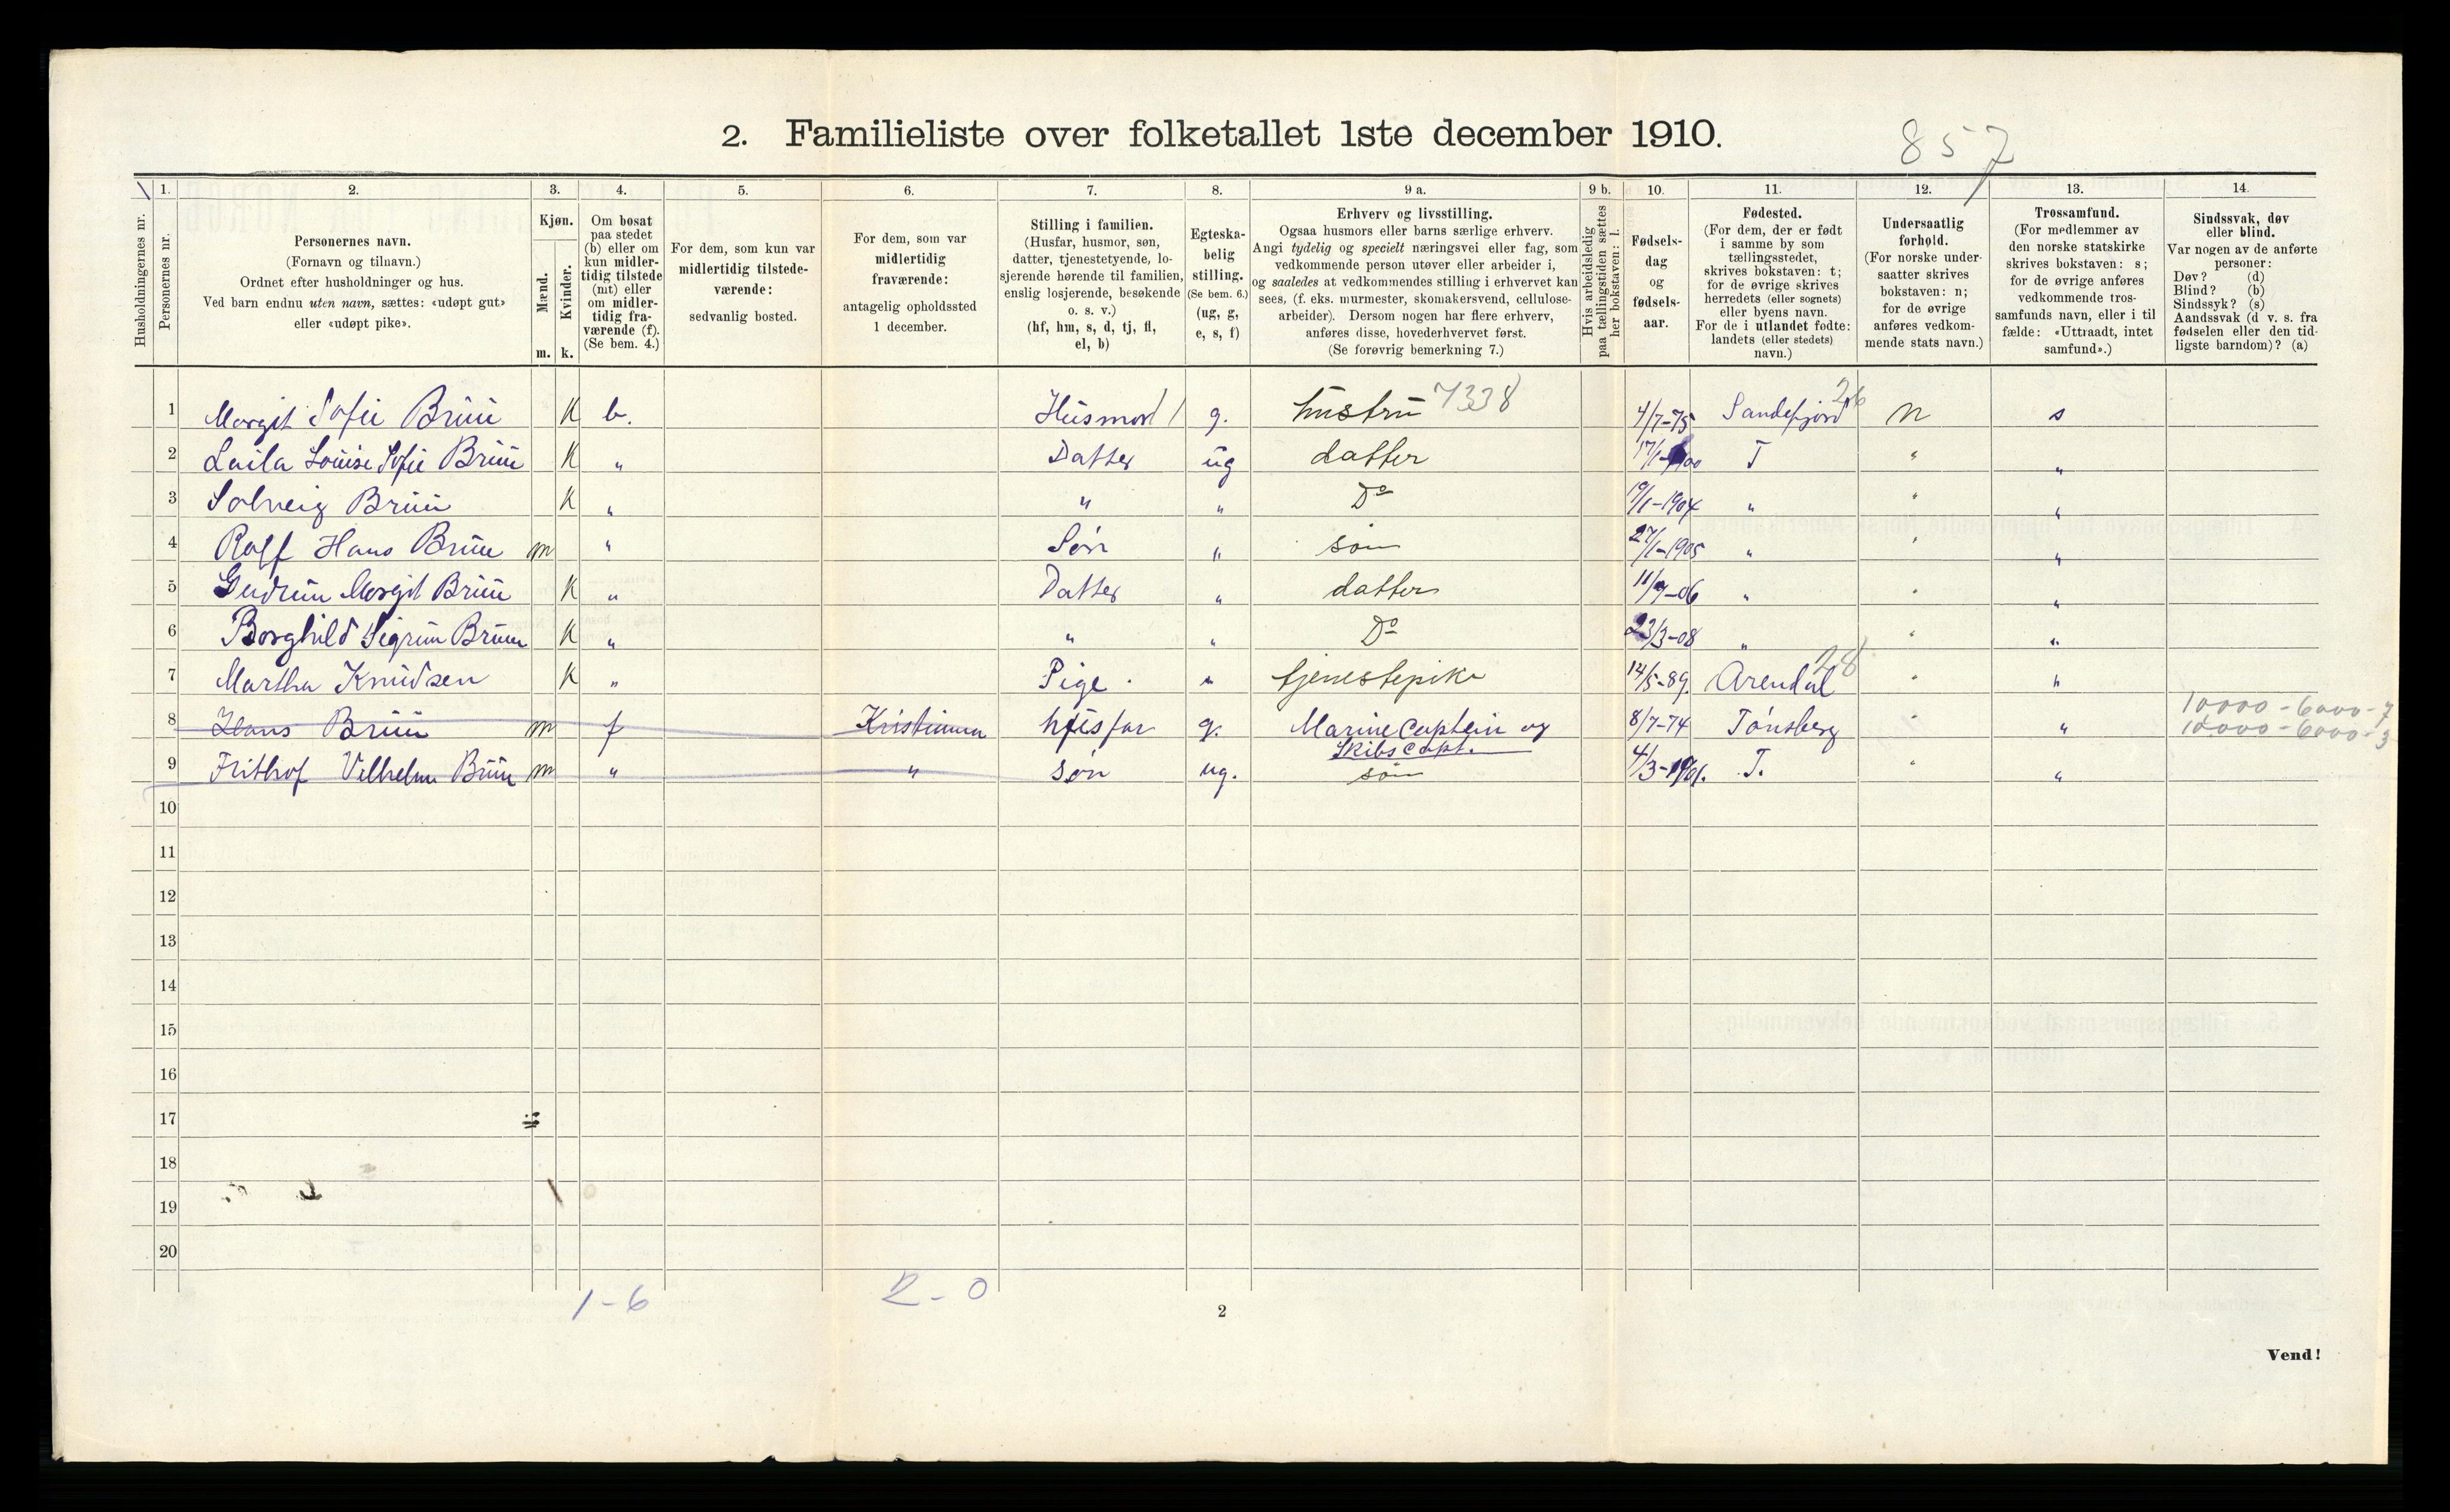 2. Familieliste over folketallet 1ste december 1910.
857
1. 2. 3. 4. 5. 6. 7. 8. 9 a. 9 b. 10. 11. 12. 13. 14.
Husholdningernes nr.
Personernes nr.
Personernes navn.
(Fornavn og tilnavn.)
Ordnet efter husholdninger og hus.
Ved barn endnu uten navn, sættes: «udøpt gut»
eller «udøpt pike».
Kjøn.
Mænd.
Kvinder.
m. k.
Om bosat
paa stedet
(b) eller om
kun midler-
tidig tilstede
(mt) eller
om midler-
tidig fra-
værende (f).
(Se bem. 4.)
For dem, som kun var
midlertidig tilstede-
værende:
sedvanlig bosted.
For dem, som var
midlertidig
fraværende:
antagelig opholdssted
1 december.
Stilling i familien.
(Husfar, husmor, søn,
datter, tjenestetyende, lo-
sjerende hørende til familien,
enslig losjerende, besøkende
o. s. v.)
(hf, hm, s, d, tj, fl,
el, b)
Egteska-
belig
stilling.
(Se bem. 6.)
(ug, g,
e, s, f)
Erhverv og livsstilling.
Ogsaa husmors eller barns særlige erhverv.
Angi tydelig og specielt næringsvei eller fag, som
vedkommende person utøver eller arbeider i,
og saaledes at vedkommendes stilling i erhvervet kan
sees, (f. eks. murmester, skomakersvend, cellulose-
arbeider). Dersom nogen har flere erhverv,
anføres disse, hovederhvervet først.
(Se forøvrig bemerkning 7.)
Hvis arbeidsledig
paa tællingstiden sættes
her bokstaven: l.
Fødsels-
dag
og
fødsels-
aar.
Fødested.
(For dem, der er født
i samme by som
tællingsstedet,
skrives bokstaven: t;
for de øvrige skrives
herredets (eller sognets)
eller byens navn.
For de i utlandet fødte:
landets (eller stedets)
navn.)
Undersaatlig
forhold.
(For norske under-
saatter skrives
bokstaven: n;
for de øvrige
anføres vedkom-
mende stats navn.)
Trossamfund.
(For medlemmer av
den norske statskirke
skrives bokstaven: s;
for de øvrige anføres
vedkommende tros-
samfunds navn, eller i til
fælde: «Uttraadt, intet
samfund».)
Sindssvak, døv
eller blind.
Var nogen av de anførte
personer:
Døv? (d)
Blind? (b)
Sindssyk? (s)
Aandssvak (d v. s. fra
fødselen eller den tid-
ligste barndom)? (a)
1 Margit Sofie Bruu K b. Husmor 1 g. hustru 7338 4/7-75 Sandefjord 26 n s
2 Laila Louise Sofie Bruu K " Datter ug datter 17/1-1900 T " "
3 Solveig Bruu K " " " Do 19/1-1904 " " "
4 Rolf Hans Bruu m " Søn " søn 27/1-1905 " " "
5 Gudrun Margit Bruu K " Datter " datter 11/9-06 " " "
6 Borghild Sigrun Bruu K " " " Do 23/3-08 " " "
7 Martha Knudsen K " Pige " tjenestepike 14/5-89. Arendal 28 " "
8 Hans Bruu m f Kristiania husfar g. Marine Captein og 8/7-74 Tønsberg " " 10000-6000-7
Skibscapt. 10000-6000-3
9 Frithof Vilhelm Bruu m " " søn ug. søn 4/3-1901. T. " "
10
11
12
13
14
15
16
17
18
19
20
1-6 2-0
2
Vend!